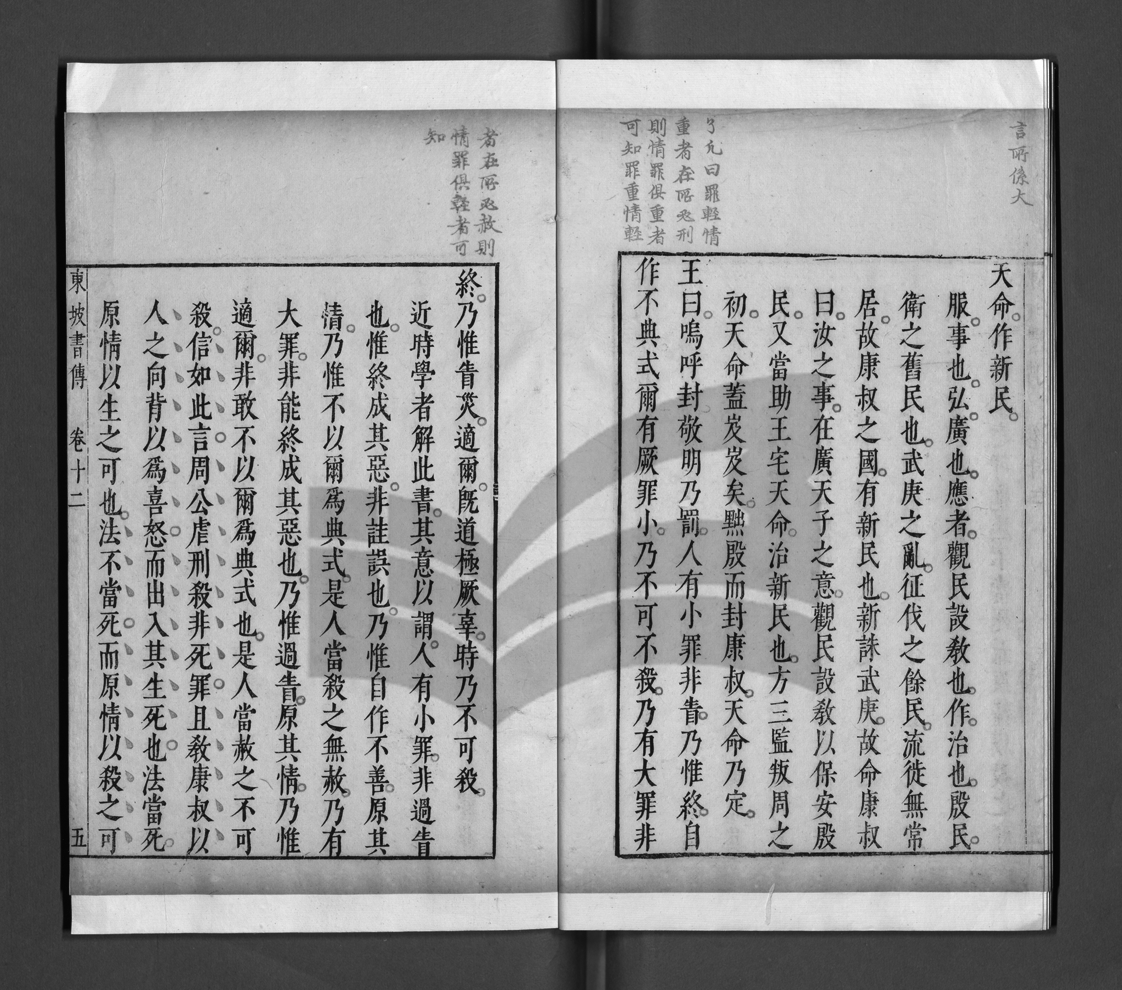 言所係大
天命作新民
服事也弘廣也應者觀民設敎也作治也殷民
衛之舊民也武庚之亂征伐之餘民流徙無常
居故康叔之國有新民也新誅武庚故命康叔
曰汝之事在廣天子之意觀民設敎以保安殷
民又當助王宅天命治新民也方三監叛周之
初天命蓋岌岌矣黜殷而封康叔天命乃定
王曰嗚呼封敬明乃罰人有小罪非眚乃惟終自
作不典式爾有厥罪小乃不可不殺乃有大罪非
了凡曰罪輕情
重者在所必刑
則情罪俱重者
可知罪重情輕
者在所必赦則
情罪俱輕者可
知
終乃惟眚災適爾旣道極厥辜時乃不可殺
近時學者解此書其意以謂人有小罪非過眚
也惟終成其惡非詿誤也乃惟自作不善原其
情乃惟不以爾爲典式是人當殺之無赦乃有
大罪非能終成其惡也乃惟過眚原其情乃惟
適爾非敢不以爾爲典式也是人當赦之不可
殺信如此言周公虐刑殺非死罪且敎康叔以
人之向背以爲喜怒而出入其生死也法當死
原情以生之可也法不當死而原情以殺之可
東坡書傳 卷十二 五